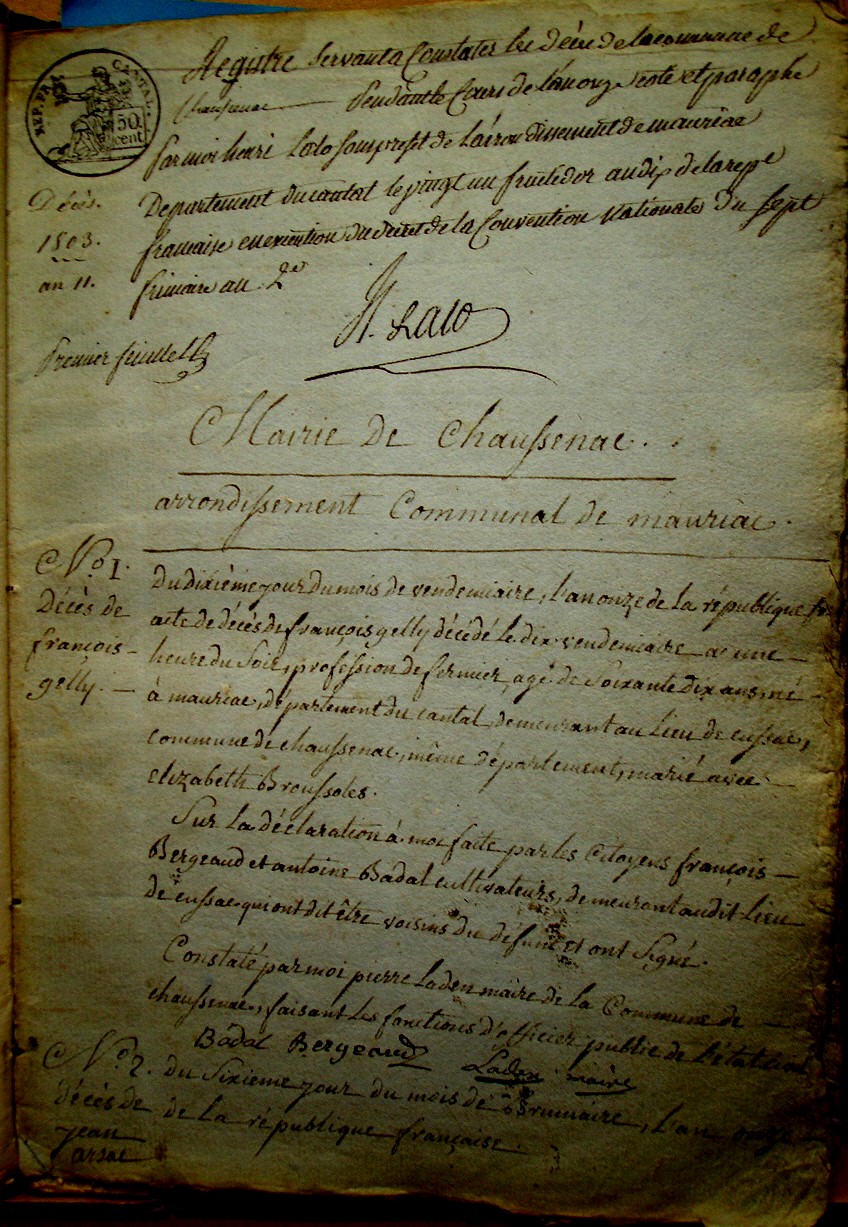 REP. FRA. CANTAL.
50 cent
Registre servant a Constater les décés de la commune de
Chaussenac Pendant le Cours de l'an onze Cotté et paraphé
Par moi henri Lalo souspreft de L'airondissement de mauriac
Departement du cantal le vingt un fructidor an dix de la repe
francaise en execution du decret de la Convention Nationale du sept
frimaire an 2e
Décès.
1803.
an 11.
H. Lalo
Premier feuillet
Mairie de Chaussenac.
arrondissement Communal de mauriac.
No. 1.
Décès de
françois
gelly.
Du dixième jour du mois de vendemiaire, l'an onze de la république fr
acte de décès de françois gelly décédé le dix vendemiaire a une
heure du Soir, profession de fermier, agé de Soixante dix ans, né
à mauriac, département du cantal, demeurant au Lieu de cussac,
commune de chaussenac, même département, marié avec
Elizabeth Broussoles.
Sur la déclaration à moi faite par les Citoyens françois
Bergeaud et antoine Badal cultivateurs, demeurant audit Lieu
de cussac qui ont dit être voisins du defunt et ont Signé.
Constaté par moi pierre Laden maire de la Commune de
chaussenac, faisant les fonctions d'officier public de l'état civil
Badal Bergeaud Laden maire
No. 2.
décès de
jean
arsac
du Sixieme jour du mois de Brumaire, l'an onze
de la république française.